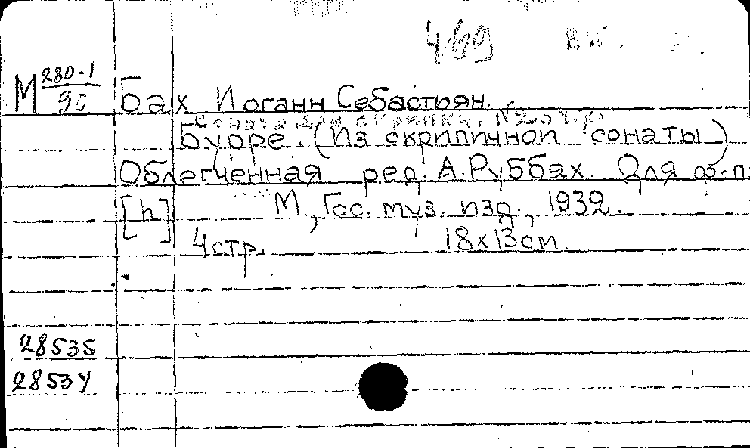 469
М 280-1/90 Бах Иоганн Себастьян.
Бурре. (Из скрипичной сонаты)
Облегченная ред. А. Руббах. Для ф.-п.
[h] М., Гос. муз. изд., 1932.
4 стр. 18х13 cm
28535
28534